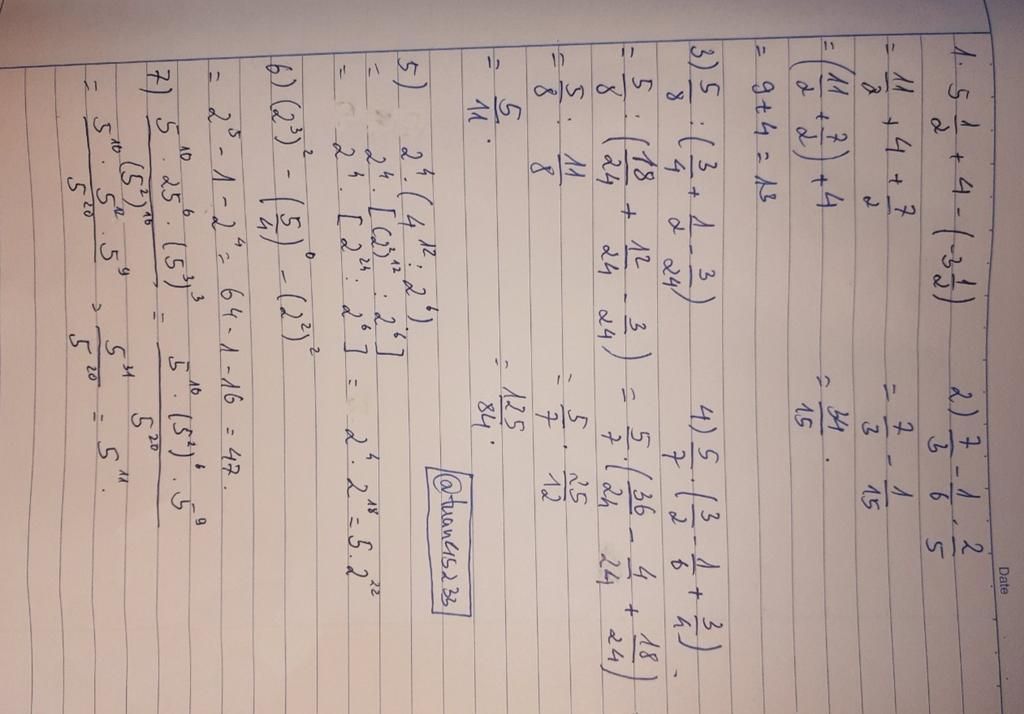 Date
1. 5 1/2 + 4 - (-3 1/2)
= 11/2 + 4 + 7/2
= (11/2 + 7/2) + 4
= 9 + 4 = 13
2) 7/3 - 1/6 . 2/5
= 7/3 - 1/15
= 34/15 .
3) 5/8 : (3/4 + 1/2 - 3/24)
= 5/8 : (18/24 + 12/24 - 3/24)
= 5/8 : 11/8
= 5/11 .
4) 5/7 . (3/2 - 1/6 + 3/4) .
= 5/7 . (36/24 - 4/24 + 18/24)
= 5/7 . 25/12
= 125/84 .
5) 2⁴ . (4¹² : 2⁶)
= 2⁴ . [(2²)¹² : 2⁶]
= 2⁴ . [2²⁴ : 2⁶] = 2⁴ . 2¹⁸ = 5 . 2²²
@tuanc15233
6) (2³)² - (5/4)⁰ - (2²)²
= 2⁵ - 1 - 2⁴ = 64 - 1 - 16 = 47 .
7) 5¹⁰ . 25⁶ . (5³)³ / (5²)¹⁰ = 5¹⁰ . (5²)⁶ . 5⁹ / 5²⁰
= 5¹⁰ . 5¹² . 5⁹ / 5²⁰ > 5³¹ / 5²⁰ = 5¹¹ .